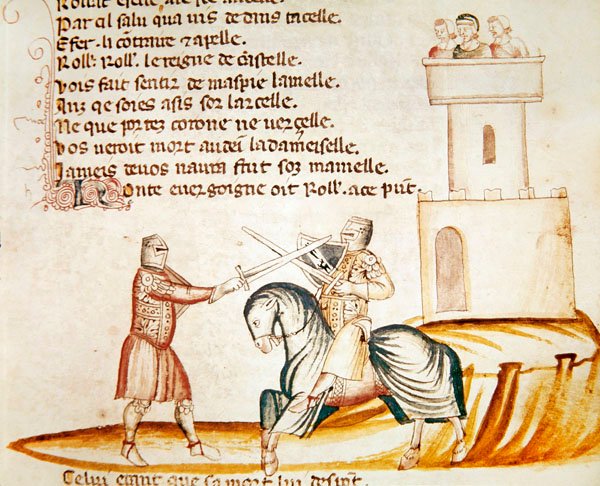 Par cil salu qua uis de dius encelle.
E fer li cōtraire z apelle.
Roll'. Roll'. le reigne de castelle.
Vois fait sentir de maspie lamelle.
Anz qe soies asis sor larcelle.
Ne que portez corone ne uerçelle.
Vos ueroit mort auderi ladameiselle.
Jameis deuos naura fruit soz mamelle.
Honte euergoigne oit Roll'. ace punt.
Celui